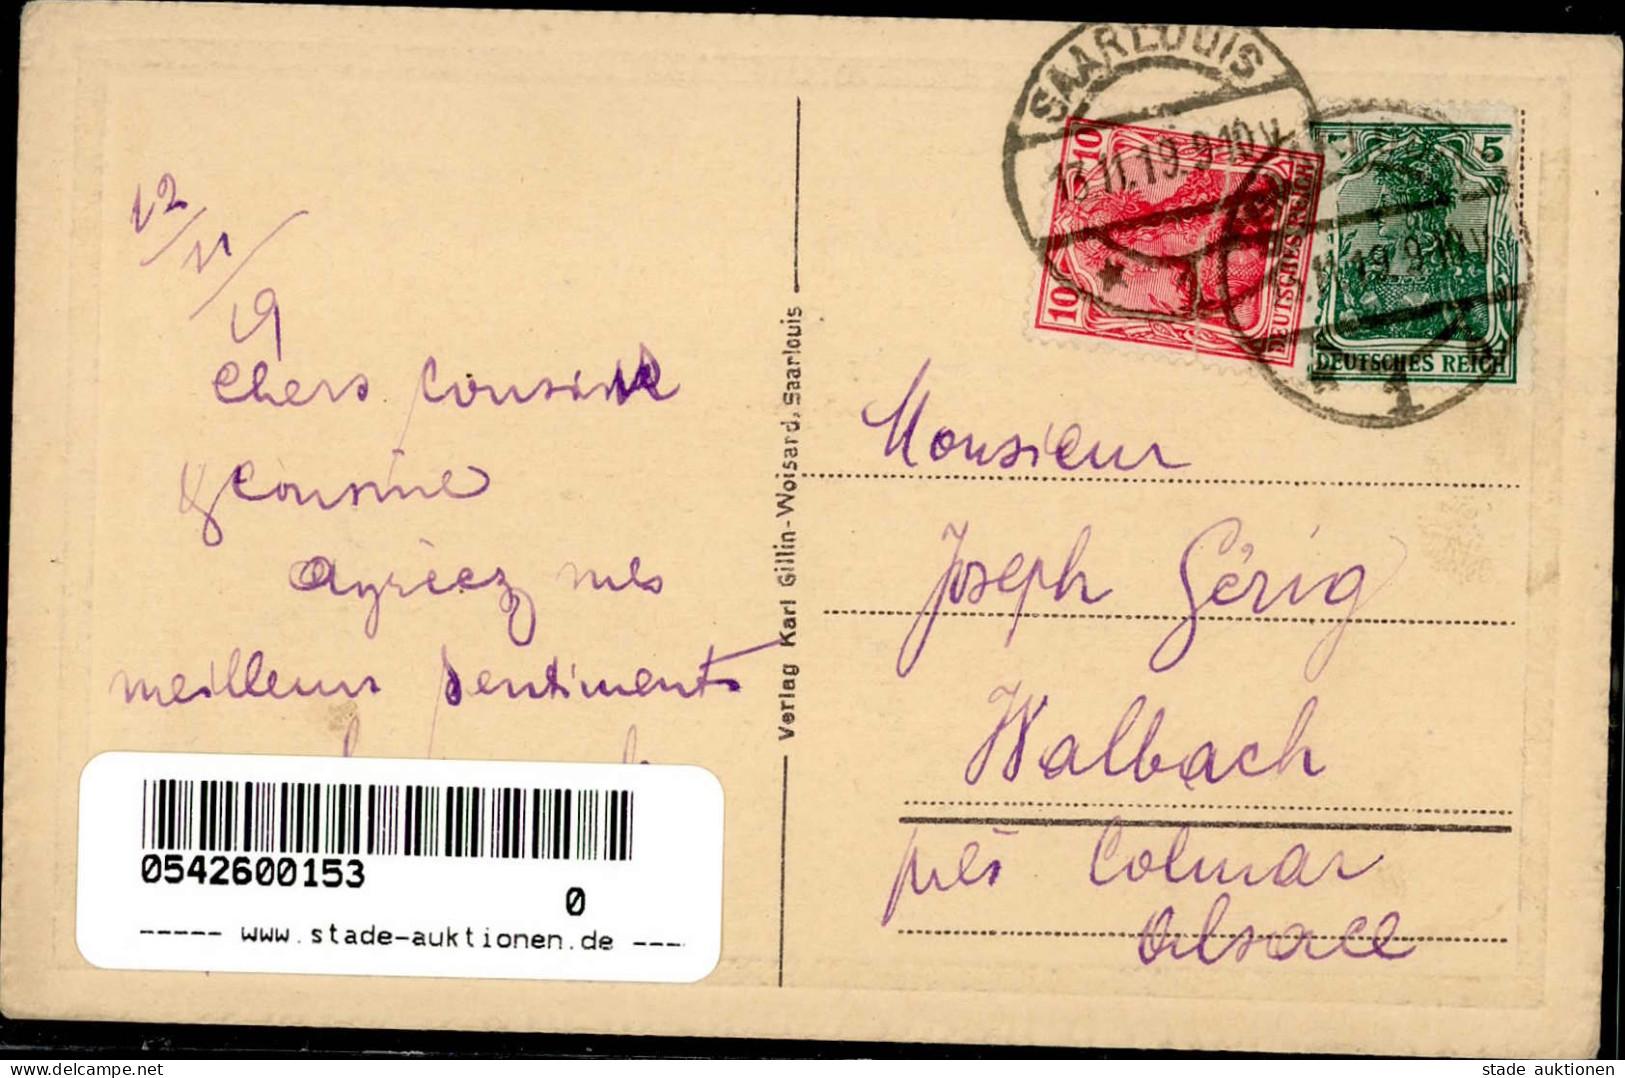 12/11/19
Chers Cousin
& Cousine
Agréez mes
meilleurs sentiments
0542600153
0
----- www.stade-auktionen.de ----
Verlag Karl Gillin-Woisard, Saarlouis
SAARLOUIS
13.11.19.9-10V.
10
10
DEUTSCHES REICH
5
.11.19.9-10V.
DEUTSCHES REICH
Monsieur
Joseph Gérig
Walbach
près Colmar
Alsace
stade auktionen